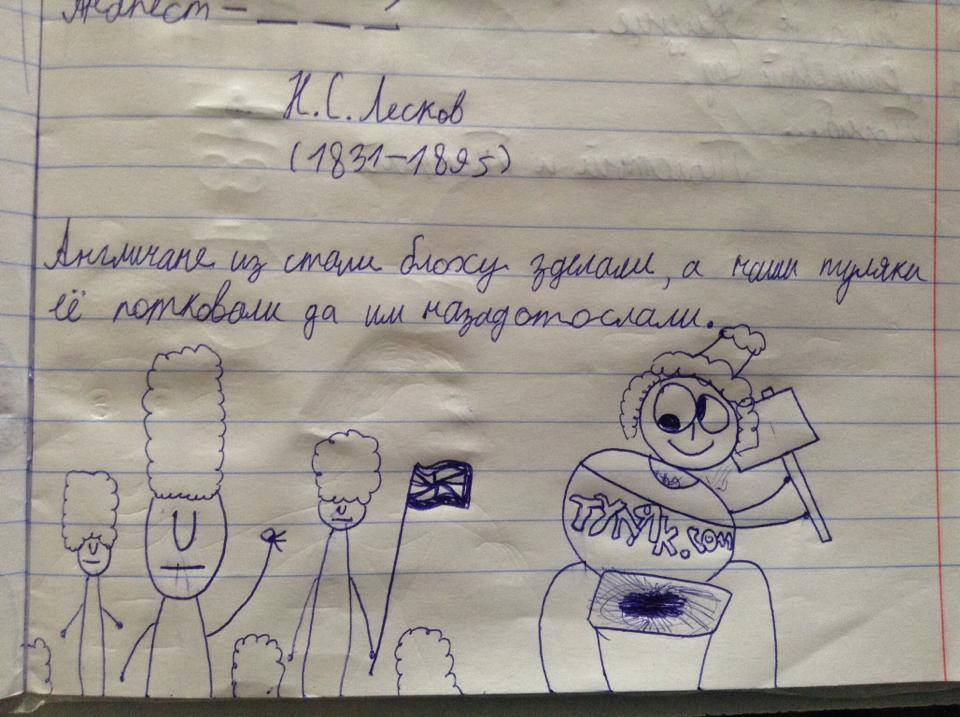 Н.С. Лесков
(1831-1895)
Англичане из стали блоху зделали, а наши туляки
её потковали да им назад отослали.
ТУЛЯК.com